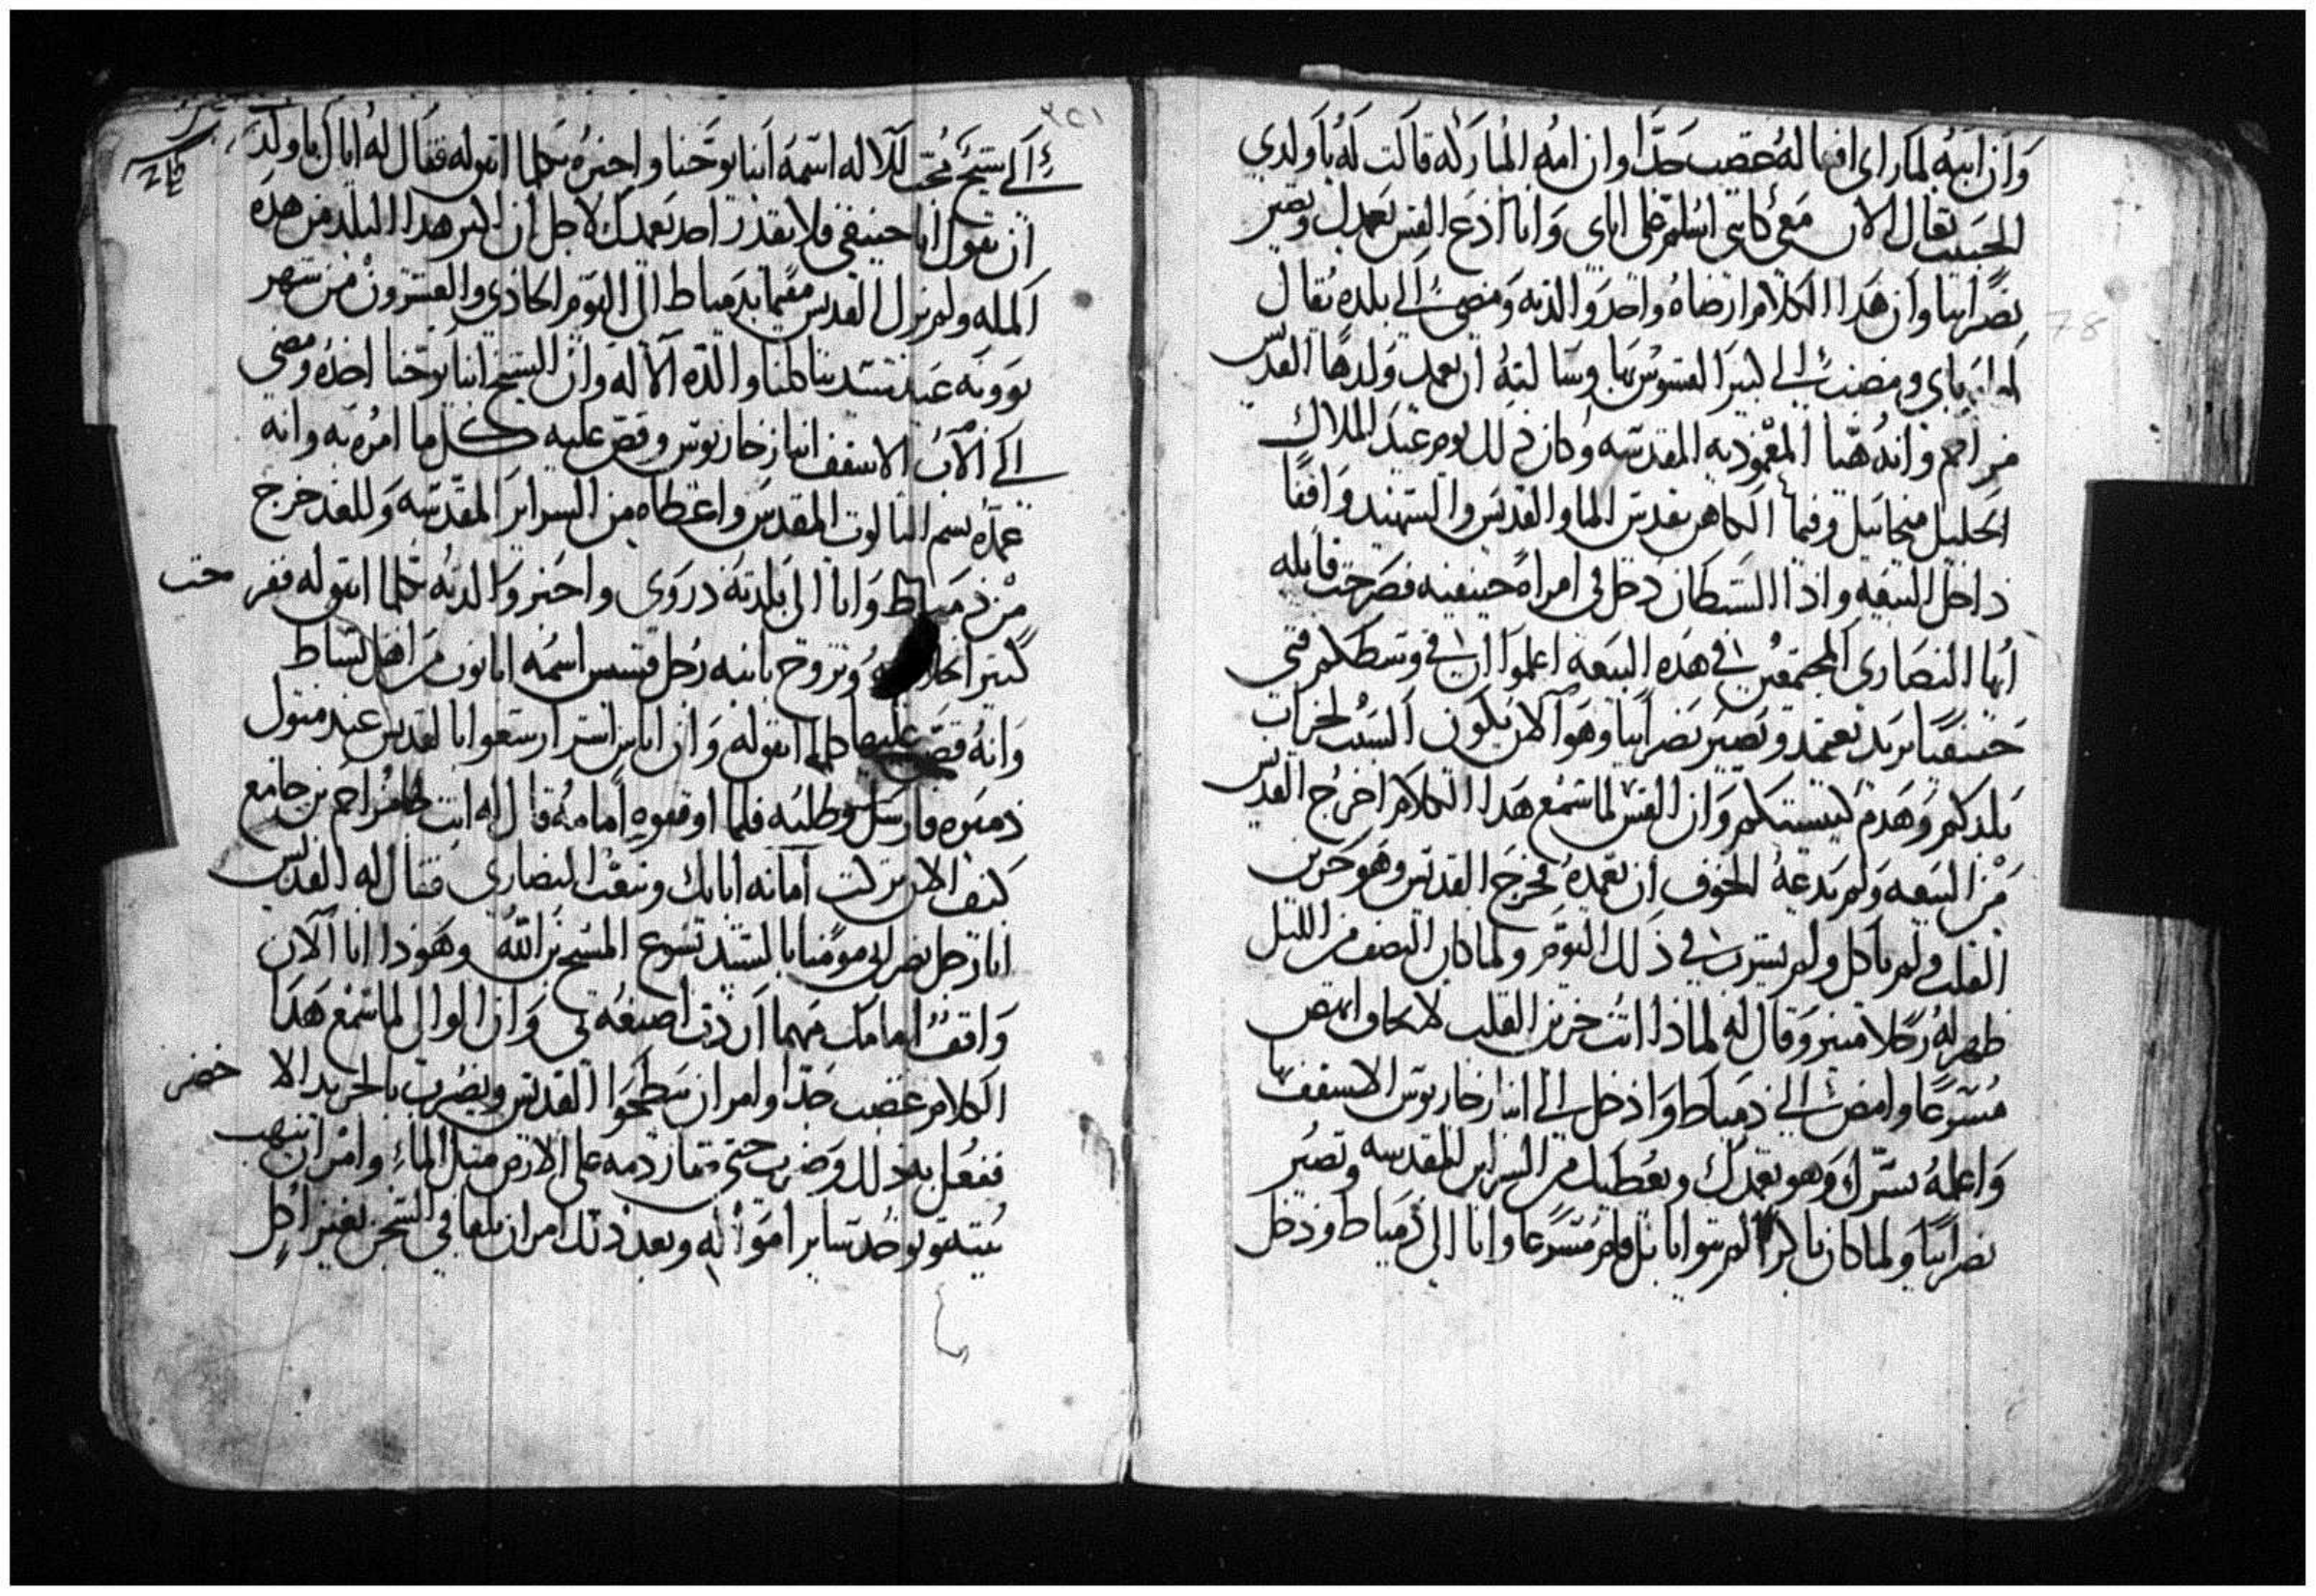 وان ابيه لما راى افعاله غضب جدا وان امه المباركه قالت له يا ولدي
الحبيب تعال الان معي كانني اسلم على اباي وانا ادع القس يعمدك وتصير
نصرانيا وان هدا الكلام ارضاه واخد والدته ومضى الى بلده يقال
ومضت الى كبير القسوس بها وسالته ان يعمد ولدها القديس
مزاحم وانه هيا المعموديه المقدسه وكان دلك يوم عيد الملاك
الجليل ميخاييل وفيما الكاهن يقدس الما والقديس والشهيد واقفا
داخل البيعه واذا الشيطان دخل في امراه حنيفيه فصرخت قايله
ايها النصارى المجتمعين في هذه البيعه اعلموا ان في وسطكم فتى
حنيفيا يريد يعتمد ويصير نصرانيا وهو الان يكون السبب لخراب
بلدكم وهدم كنيستكم وان القس لما سمع هدا الكلام اخرج القديس
من البيعه ولم يدعه الخوف ان يعمده فخرج القديس وهو حزين
القلب ولم ياكل ولم يشرب في ذلك اليوم ولما كان النصف من الليل
ظهر له رجلا منير وقال له لماذا انت حزين القلب لا تخاف انهض
مسرعا وامض الى دمياط وادخل الى انبا زخاريوس الاسقف بها
واعلمه بسرك وهو يعمدك ويعطيك من السراير المقدسه وتصير
نصرانيا ولما كان باكرا لم يتوانا بل قام مسرعا واتا الى دمياط ودخل
الى شيخ محب للاله اسمه انبا يوحنا واخبره بكلما اتفق له فقال له ايا يا ولد
ان تقول انا حنيفي فلا يقدر احد يعمدك لاجل ان اكبر هدا البلد من هده
المله ولم يزل القديس مقيما بدمياط الى اليوم الحادي والعشرون من شهر
بوونه عيد ستنا كلنا والدة الاله وان الشيخ انبا يوحنا اخده ومضى
الى الاب الاسقف انبا زخاريوس وقص عليه كل ما امره به وانه
عمده بسم التالوت المقدس واعطاه من السراير المقدسه وللغد خرج
من دمياط واتا الى بلدته دروى واخبر والدته بكلما اتفق له ففرحت
كتير وتزوج بابنه رجل قسيس اسمه ابانوب من اهل بساط
وانه قص عليها كلما اتفق له وان اناس اشرار سعوا بالقديس عند متولي
دميره فارسل وطلبه فلما اوقفوه امامه قال له انت هو مزاحم بن جامع
كيف الان تركت امانه اباك وتبعت النصارى فقال له القديس
انا رجل نصراني مومنا بالسيد يسوع المسيح بن الله وهودا انا الان
واقف امامك مهما اردت اصنعه بي وان الوالي لما سمع هدا
الكلام غضب جدا وامر ان يبطحوا القديس ويضرب بالجريد الاخضر
ففعل به دلك وضرب حتى متل الماء وامر ان ينهب
بيته ويوخد ساير امواله وبعد ذلك امر ان يلقا في السجن بغير اكل